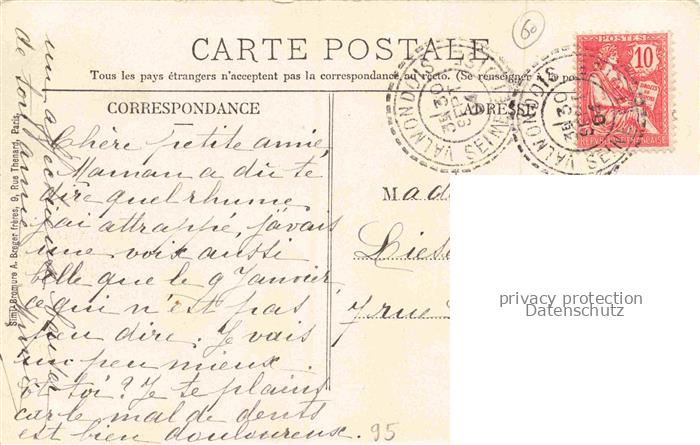 60
CARTE POSTALE
Tous les pays étrangers n'acceptent pas la correspondance au recto. (Se renseigner à la po
CORRESPONDANCE
ADRESSE
POSTES
10
RÉPUBLIQUE FRANÇAISE
VALMONDOIS
SEINE
VALMONDOIS
SEINE
Chère petite amie,
Maman a dû te
dire quel rhume
j'ai attrappé, j'avais
une voix aussi
belle que le 9 Janvier
ce qui n'est pas
peu dire. Je vais
un peu mieux.
Et toi? Je te plains
car le mal de dents
est bien douloureux.
un affectueux
de ton amie
Simili-Bromure A. Breger frères, 9, Rue Thenard, Paris
Mad
7 rue
95
privacy protection
Datenschutz